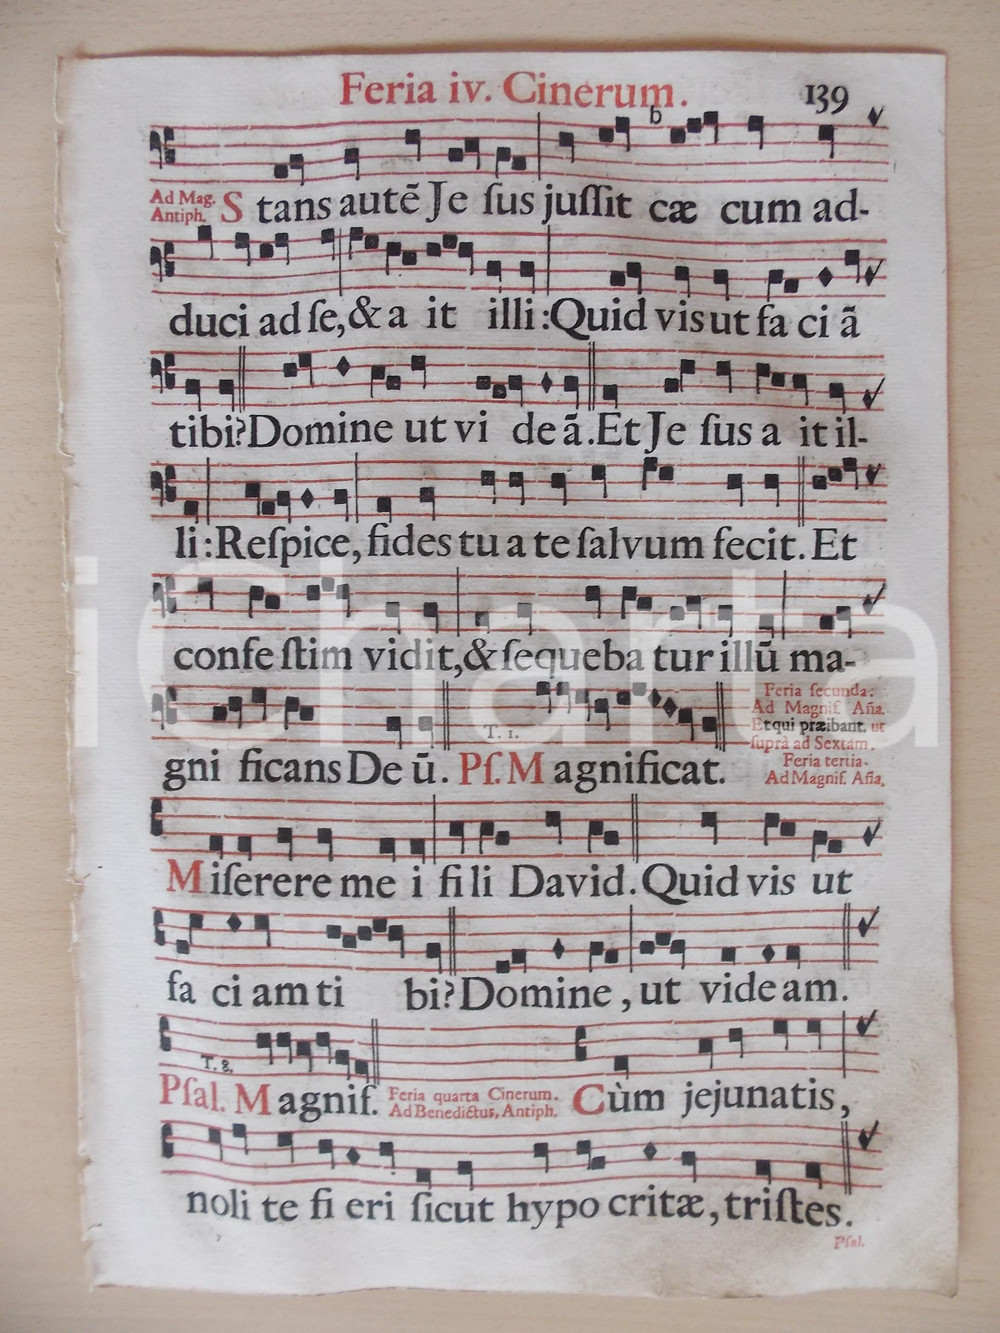 Feria iv. Cinerum. 139
b
Ad Mag.
Antiph.
S tans autē Je ſus juſſit cæ cum ad-
duci ad ſe, & a it illi : Quid vis ut fa ci ã
tibi? Domine ut vi de ã. Et Je ſus a it il-
li : Reſpice, fides tu a te ſalvum fecit. Et
confe ſtim vidit, & ſequeba tur illū ma-
T. 1.
gni ficans De ū. Pſ. M agnificat.
Feria ſecunda:
Ad Magniſ. Aña.
Et qui præibant, ut
ſuprà ad Sextam.
Feria tertia.
Ad Magniſ. Aña.
M iſerere me i fi li David. Quid vis ut
fa ci am ti bi? Domine, ut vide am.
T. 8.
Pſal. M agnif.
Feria quarta Cinerum.
Ad Benedictus, Antiph.
Cùm jejunatis,
noli te fi eri ſicut hypo critæ, triſtes.
Pſal.
iCharta